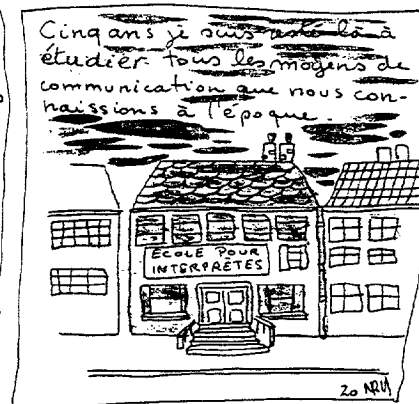 Cinq ans je suis resté là à
étudier tous les moyens de
communication que nous con-
naissions à l'époque.
ÉCOLE POUR
INTERPRÈTES
20